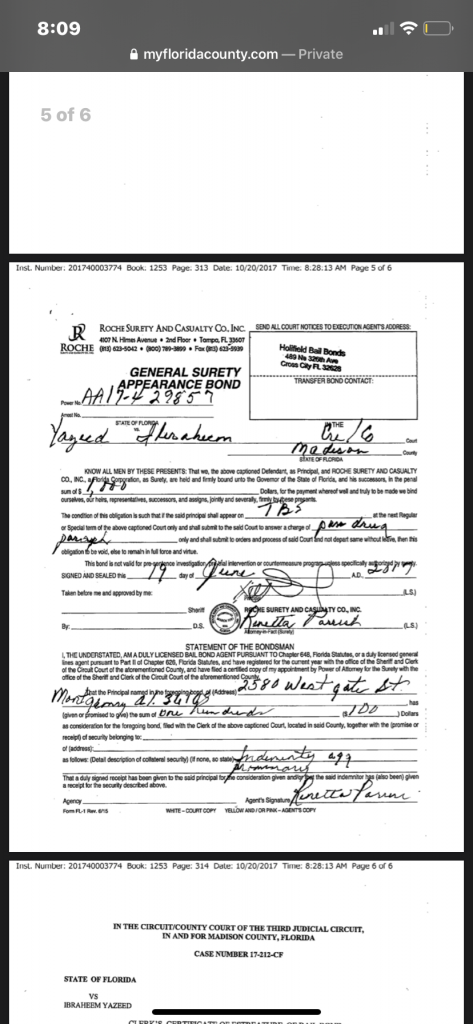 8:09
myfloridacounty.com — Private
5 of 6
Inst. Number: 201740003774 Book: 1253 Page: 313 Date: 10/20/2017 Time: 8:28:13 AM Page 5 of 6
R
ROCHE
ROCHE SURETY AND CASUALTY CO., INC.
4107 N. Himes Avenue • 2nd Floor • Tampa, FL 33607
(813) 623-5042 • (800) 789-3899 • Fax (813) 623-5939
SEND ALL COURT NOTICES TO EXECUTION AGENT'S ADDRESS:
Holifield Bail Bonds
469 Ne 326th Ave
Cross City FL 32628
TRANSFER BOND CONTACT:
GENERAL SURETY
APPEARANCE BOND
Power No. AA17-429857
Arrest No.
STATE OF FLORIDA
vs.
Yazeed Ibraheem
IN THE
Court
Madison County
STATE OF FLORIDA
KNOW ALL MEN BY THESE PRESENTS: That we, the above captioned Defendant, as Principal, and ROCHE SURETY AND CASUALTY
CO., INC., a Florida Corporation, as Surety, are held and firmly bound unto the Governor of the State of Florida, and his successors, in the penal
sum of $ 1,000 Dollars, for the payment whereof well and truly to be made we bind
ourselves, our heirs, representatives, successors, and assigns, jointly and severally, firmly by these presents.
The condition of this obligation is such that if the said principal shall appear on TBS at the next Regular
or Special term of the above captioned Court only and shall submit to the said Court to answer a charge of drug
only and shall submit to orders and process of said Court and not depart same without leave, then this
obligation to be void, else to remain in full force and virtue.
This bond is not valid for pre-sentence investigation, pretrial intervention or countermeasure program unless specifically authorized by surety.
SIGNED AND SEALED this 19 day of June A.D. 2017
Taken before me and approved by me:
(L.S.)
Sheriff
ROCHE SURETY AND CASUALTY CO., INC.
By: D.S.
Attorney-in-Fact (Surety) (L.S.)
STATEMENT OF THE BONDSMAN
I, THE UNDERSTATED, AM A DULY LICENSED BAIL BOND AGENT PURSUANT TO Chapter 648, Florida Statutes, or a duly licensed general
lines agent pursuant to Part II of Chapter 626, Florida Statutes, and have registered for the current year with the office of the Sheriff and Clerk
of the Circuit Court of the aforementioned County, and have filed a certified copy of my appointment by Power of Attorney for the Surety with the
office of the Sheriff and Clerk of the Circuit Court of the aforementioned County.
That the Principal named in the foregoing bond, of (Address) 2580 West gate St
has
(given or promised to give) the sum of One Hundred ($ 100 ) Dollars
as consideration for the foregoing bond, filed with the Clerk of the above captioned Court, located in said County, together with the (promise or
receipt) of security belonging to:
of (address):
as follows: (Detail description of collateral security) (if none, so state)
That a duly signed receipt has been given to the said principal for the consideration given and/or that the said indemnitor has (also been) given
a receipt for the security described above.
Agency Agent's Signature
Form FL-1 Rev. 8/15 WHITE – COURT COPY YELLOW AND / OR PINK – AGENT'S COPY
Inst. Number: 201740003774 Book: 1253 Page: 314 Date: 10/20/2017 Time: 8:28:13 AM Page 6 of 6
IN THE CIRCUIT/COUNTY COURT OF THE THIRD JUDICIAL CIRCUIT,
IN AND FOR MADISON COUNTY, FLORIDA
CASE NUMBER 17-212-CF
STATE OF FLORIDA
VS
IBRAHEEM YAZEED